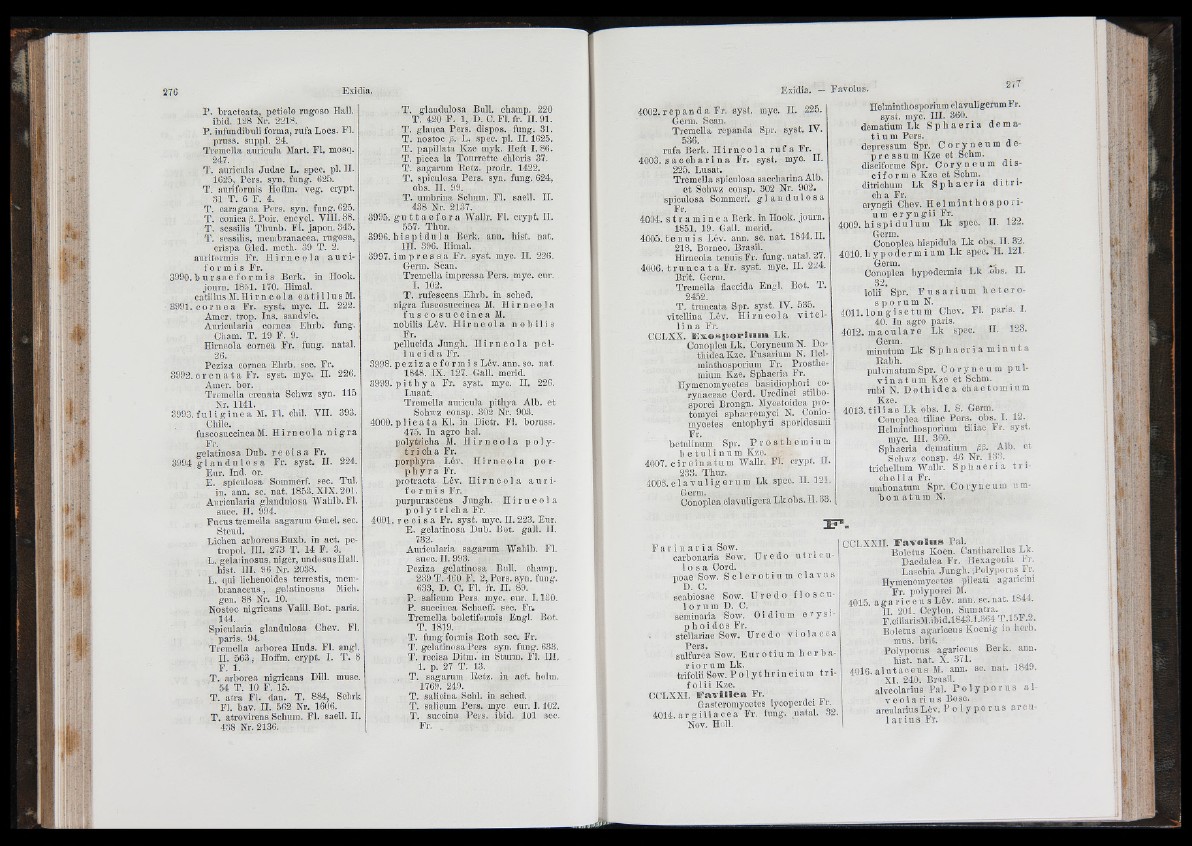 276 Exidia.
P. bracteata, petiolo rugoso Hall.
ibid. 128 Nr. 2218.
P. infundibuli forma, rufa Loes. Fl.
pruss. suppl. 24.
Tremella auricula Mart. Fl. mosq.
247.
T. auricula Judae L. spec. pl. II.
1625. Pers. syn. fung. 625.
T. auriformis Hoffm. veg. crypt.
31 T. 6 F. 4.
T. caragana Pers. syn. fung. 625.
T. conica β. Poir. encycl. VIII. 88.
T. sessilis Thunb. Fl. japon. 345.
T. sessilis, membranacea, rugosa,
crispa Gled. meth. 39 T. 2.
auriformis Fr. Hirneola auri-
formis Fr.
3990. bursaeformis Berk. in Hook.
journ. 1851. 170. Himal.
catillus M. Hirneola catillus M.
3991. cornea Fr. syst. myc. II. 222.
Amer. trop. Ins. sandvic.
Auricularia cornea Ehrb. fung.
Cham. T. 19 F. 9.
Hirneola cornea Fr. fung. natal.
26.
Peziza cornea Ehrb. sec. Fr.
3992. crenata Fr. syst. myc. II. 226.
Amer. bor.
Tremella crenata Schwz syn. 115
Nr. 1141.
3993. fuliginea M. Fl. chil. VII. 393.
Chile.
fuscosuccinea M. Hirneola nigra
Fr.
gelatinosa Dub. recisa Fr.
3994 glandulosa Fr. syst. II. 224.
Eur. Ind. or.
E. spiculosa Sommerf. sec. Tul.
in. ann. sc. nat. 1853. XIX. 201.
Auricularia glandulosa Wahlb. Fl.
suec. II. 994.
Fucus tremella sagarum Gmel. sec.
Steud.
Lichen arboreus Buxb. in act. pe-
tropol. III. 273 T. 14 F. 3.
L. gelatinosus, niger, undosus Hall.
hist. III. 96 Nr. 2038.
L. qui lichenoides terrestis, mem-
branaceus, gelatinosus Mich.
gen. 88 Nr. 10.
Nostoc nigricans Vaill. Bot. paris.
144.
Spicularia glandulosa Chev. Fl.
paris. 94.
Tremella arborea Huds. Fl. angl.
II. 563, Hoffm. crypt. I. T. 8
F. 1.
T. arborea nigricans Dill. musc.
54 T. 10 F. 15.
T. atra Fl. dan. T. 884, Schrk
Fl. bav. II. 562 Nr. 1606.
T. atrovirens Schum. Fl. saell. II.
438 Nr. 2136.
T. glandulosa Bull. champ. 220
T. 420 F. 1, D. C. Fl. fr. II. 91.
T. glauca Pers. dispos. fung. 31.
T. nostoc β. L. spec. pl. II. 1625.
T. papillata Kze myk. Heft I. 86.
T. picea la Tourrette chloris 37.
T. sagarum Retz. prodr. 1422.
T. spiculosa Pers. syn. fung. 624,
obs. II. 99.
T. umbrina Schum. Fl. saell. II.
438 Nr. 2137.
3995. guttaefora Wallr. Fl. crypt. II.
557. Thur.
3996. hispidula Berk. ann. hist. nat.
III. 396. Himal.
3997. impressa Fr. syst. myc. II. 226.
Germ. Scan.
Tremella impressa Pers. myc. eur.
I. 102.
T. rufescens Ehrb. in sched.
nigra fuscosuccinea M. Hirneola
fuscosuccinea M.
nobilis Lév. Hirneola nobilis
pellucida Jungh. Hirneola pel-
lucida Fr.
3998. pezizaeformis Lév. ann. sc. nat.
1848. IX. 127. Gall. merid.
3999. pithya Fr. syst. myc. II. 226.
Lusat.
Tremella auricula pithya Alb. et
Schwz consp. 302 Nr. 903.
4000. plicata Kl. in Dietr. Fl. boruss.
475. In agro hal.
polytricha M. Hirneola poly-
tricha Fr.
porphyra Lév. Hirneola por-
phyra Fr.
protracta Lév. Hirneola auri-
formis Fr.
purpurascens Jungh. Hirneola
polytricha Fr.
4001. recisa Fr. syst. myc. II. 223. Eur.
E. gelatinosa Dub. Bot. gall. II.
732.
Auricularia sagarum Wahlb. Fl.
suec. II. 993.
Peziza gelatinosa Bull. champ.
239 T. 460 F. 2, Pers. syn. fung.
633, D. C. Fl. fr. II. 89.
P. salicum Pers. myc. eur. I. 130.
P. succinea Schaeff. sec. Fr.
Tremella boletiformis Engl. Bot.
T. 1819.
T. fungiformis Roth sec. Fr.
T. gelatinosa Pers. syn. fung. 633.
T. recisa Ditm. in Sturm. Fl. III.
I. p. 27 T. 13.
T. sagarum Retz. in act. holm.
1769. 249.
T. salicina Schl. in sched.
T. salicum Pers. myc. eur. I. 102.
T. succina Pers. ibid. 101 sec.
Fr.
Exidia. — Favolus. 277
4002. repanda Fr. syst. myc. II. 225.
Germ. Scan.
Tremella repanda Spr. syst. IV.
536.
rufa Berk. Hirneola rufa Fr.
4003. saccharina Fr. syst. myc. II.
225. Lusat.
Tremella spiculosa saccharina Alb.
et Schwz consp. 302 Nr. 902.
spiculosa Sommerf. glandulosa
Fr.
4004. straminea Berk. in Hook. journ.
1851. 19. Gall. merid.
4005. tenuis Lév. ann. sc. nat. 1844. II.
218. Borneo. Brasil.
Hirneola tenuis Fr. fung. natal. 27.
4006. truncata Fr. syst. myc. II. 224.
Brit. Germ.
Tremella flaccida Engl. Bot. T.
2452.
T. truncata Spr. syst. IV. 535.
vitellina Lév. Hirneola vitel-
lina Fr.
CCLXX. Exosporium Lk.
Conoplea Lk. Coryneum N. Do-
thidea Kze. Fusarium N. Hel-
minthosporium Fr. Prosthe-
mium Kze. Sphaeria Fr.
Hymenomycetes basidiophori co-
rynaceae Cord. Uredinei stilbo-
sporei Brongn. Mycetoidea pro-
tomyci sphaeromyci N. Conio-
mycetes entophyti sporidesmii
Fr.
betulinum Spr. Prosthemium
betulinum Kze.
4007. circinatum Wallr. Fl. crypt. II.
233. Thur.
4008. clavuligerum Lk spec. II. 121.
Germ.
Conoplea clavuligera Lk obs. II. 33.
Helminthosporium clavuligerum Fr.
syst. myc. III. 360.
dematium Lk Sphaeria dema-
tium Pers.
depressum Spr. Coryneum de-
pressum Kze et Schm.
disciforme Spr. Coryneum dis-
ciforme Kze et Schm.
ditrichum Lk Sphaeria ditri-
cha Fr.
eryngii Chev. Helminthospori-
um eryngii Fr.
4009. hispidulum Lk spec. II. 122.
Germ.
Conoplea hispidula Lk obs. II. 32.
4010. hypodermium Lk spec. II. 121.
Germ.
Conoplea hypodermia Lk obs. II.
32.
lolii Spr. Fusarium hetero-
sporum N.
4011. longisetum Chev. Fl. paris. I.
40. In agro paris.
4012. maculare Lk spec. II. 123.
Germ.
minutum Lk Sphaeria minuta
Rabh.
pulvinatum Spr. Coryneum pul-
vinatum Kze et Schm.
rubi N. Dothidea chaetomium
Kze.
4013. tiliae Lk obs. I. 8. Germ.
Conoplea tiliae Pers. obs. I. 12.
Helminthosporium tiliae Fr. syst.
myc. III. 360.
Sphaeria dematium ββ. Alb. et
Schwz consp. 46 Nr. 133.
trichellum Wallr. Sphaeria tri-
chella Fr.
umbonatum Spr. Coryneum um-
bonatum N.
F.
Farinaria Sow.
carbonaria Sow. Uredo utricu-
losa Cord.
poae Sow. Sclerotium clavus
D. C.
scabiosae Sow. Uredo floscu-
lorum D. C.
seminaria Sow. Oidium erysi-
phoides Fr.
stellariae Sow. Uredo violacea
Pers.
sulfurea Sow. Eurotium herba-
riorum Lk.
trifolii Sow. Polythrincium tri-
folii Kze.
CCLXXI. Favillea Fr.
Gasteromycetes lycoperdei Fr.
4014. argillacea Fr. fung. natal. 32.
Nov. Holl.
CCLXXII. Favolus Pal.
Boletus Koen. Cantharellus Lk.
Daedalea Fr. Hexagonia Fr.
Laschia Jungh. Polyporus Fr.
Hymenomycetes pileati agaricini
Fr. polyporei M.
4015. agariceus Lév. ann. sc. nat. 1844.
II. 201. Ceylon. Sumatra.
F. ciliaris M. ibid. 1843. I. 364 T. 15 F. 2.
Boletus agariceus Koenig in herb.
mus. brit.
Polyporus agariceus Berk. ann.
hist. nat. X. 371.
4016. alutaceus M. ann. sc. nat. 1849.
XI. 240. Brasil.
alveolarius Pal. Polyporus al-
veolarius Bosc.
arcularius Lév. Polyporus arcu-
larius Fr.